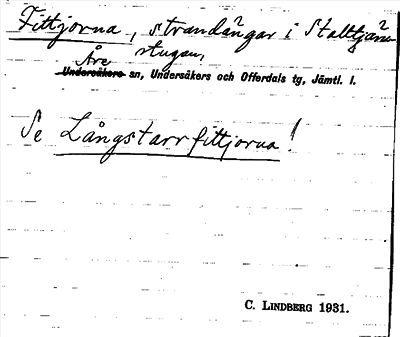 Fittjorna, strandängar i Stalltjärn-
stugan,
Åre
Undersåkers sn, Undersåkers och Offerdals tg, Jämtl. l.
Se Långstarrfittjorna!
C. LINDBERG 1931.